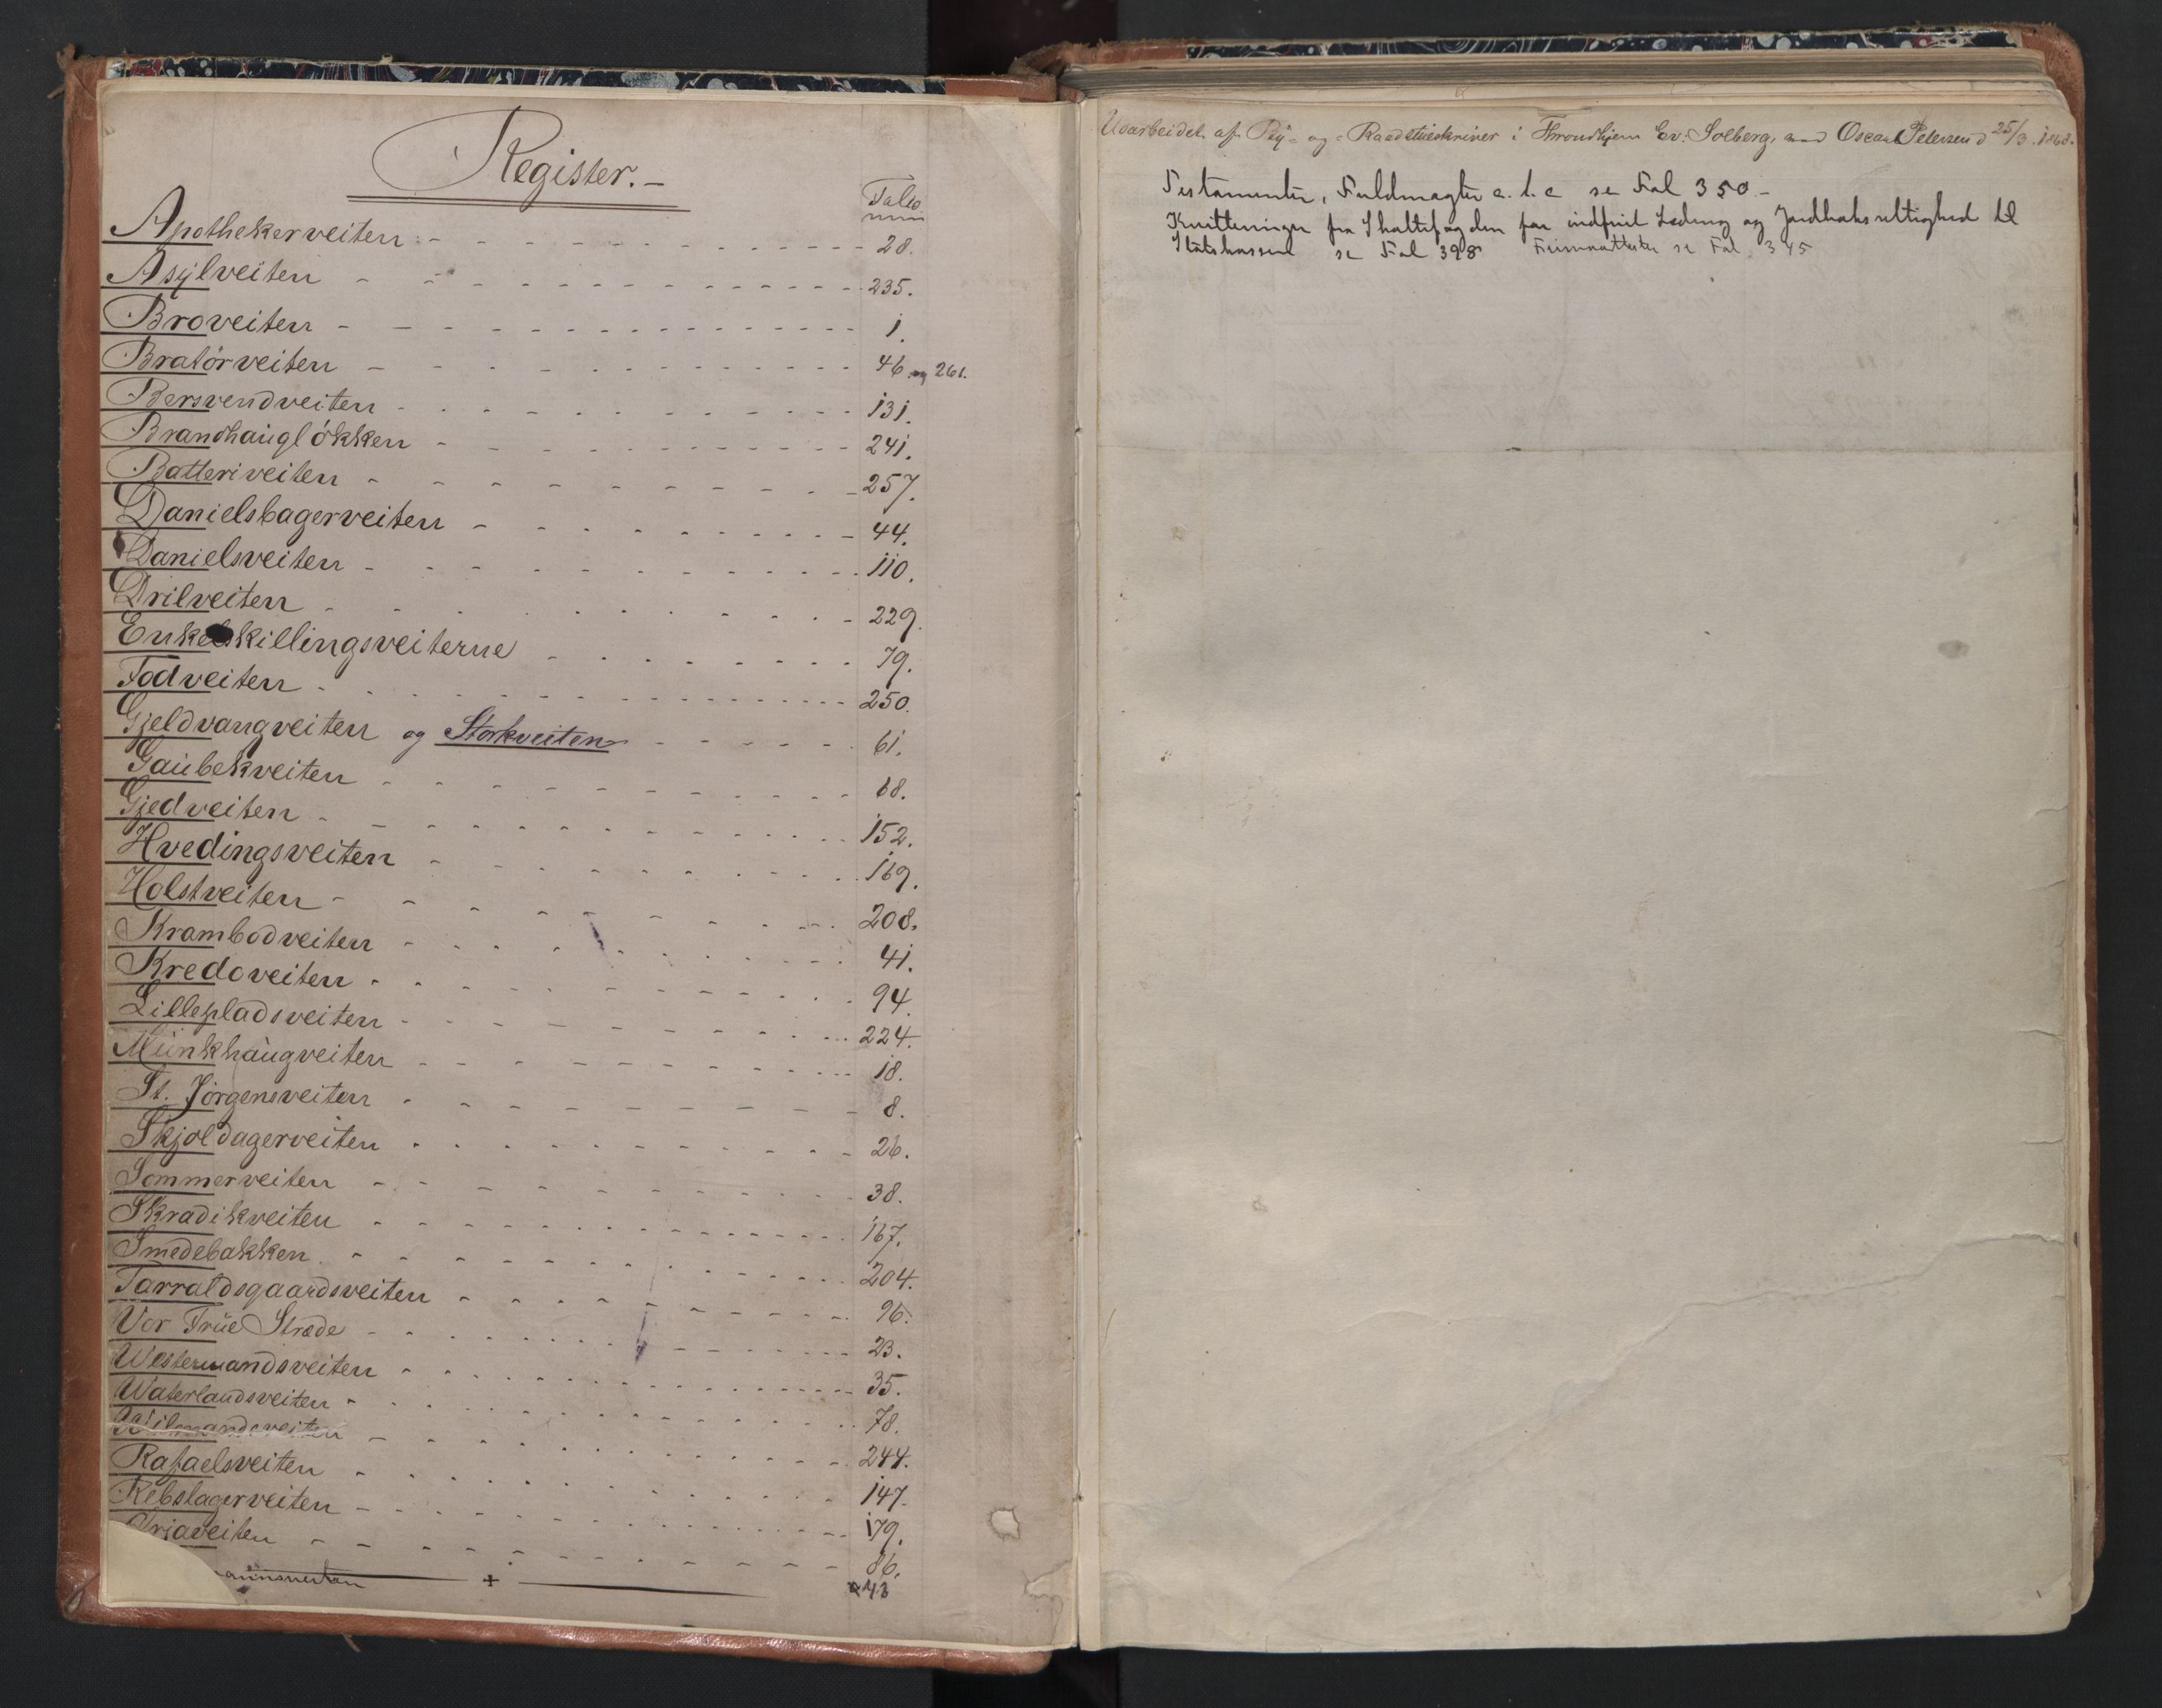 Register.-
Folio
num
Apothekerveiten 28.
Asylveiten 235.
Broveiten 1.
Bratørveiten 46 og 261.
Bersvendveiten 131.
Brandhaugløkken 241.
Batteriveiten 257.
Danielsbagerveiten 44.
Danielsveiten 110.
Drilveiten 229.
Enkeltskillingsveiterne 79.
Fodveiten 250.
Gjeldvangveiten og Storkveiten 61.
Gaubekveiten 68.
Gjedveiten 152.
Hvedingsveiten 169.
Holstveiten 208.
Krambodveiten 41.
Kredoveiten 94.
Lillepladsveiten 224.
Munkhaugveiten 18.
St. Jørgensveiten 8.
Skjoldagerveiten 26.
Sommerveiten 38.
Skradikveiten 167.
Smedebakken 204.
Tarraldsgaardsveiten 96.
Vor Frue Stræde 23.
Westermandsveiten 35.
Waterlandsveiten 78.
244.
Rafaelsveiten 147.
Rebslagerveiten 179.
riaveiten 86.
243
Udarbeidet af By- og Raadstueskriver i Throndhjem Ev. Solberg, ved Oscar Petersen d 25/3. 1868.
Testamenter, Fuldmagter e. l. c se Fol 350 -
Kvitteringer fra Skattefogden for indfriet Leding og Jordboksrettighed til
Statskassen se Fol 398 Feieimattester se Fol. 345